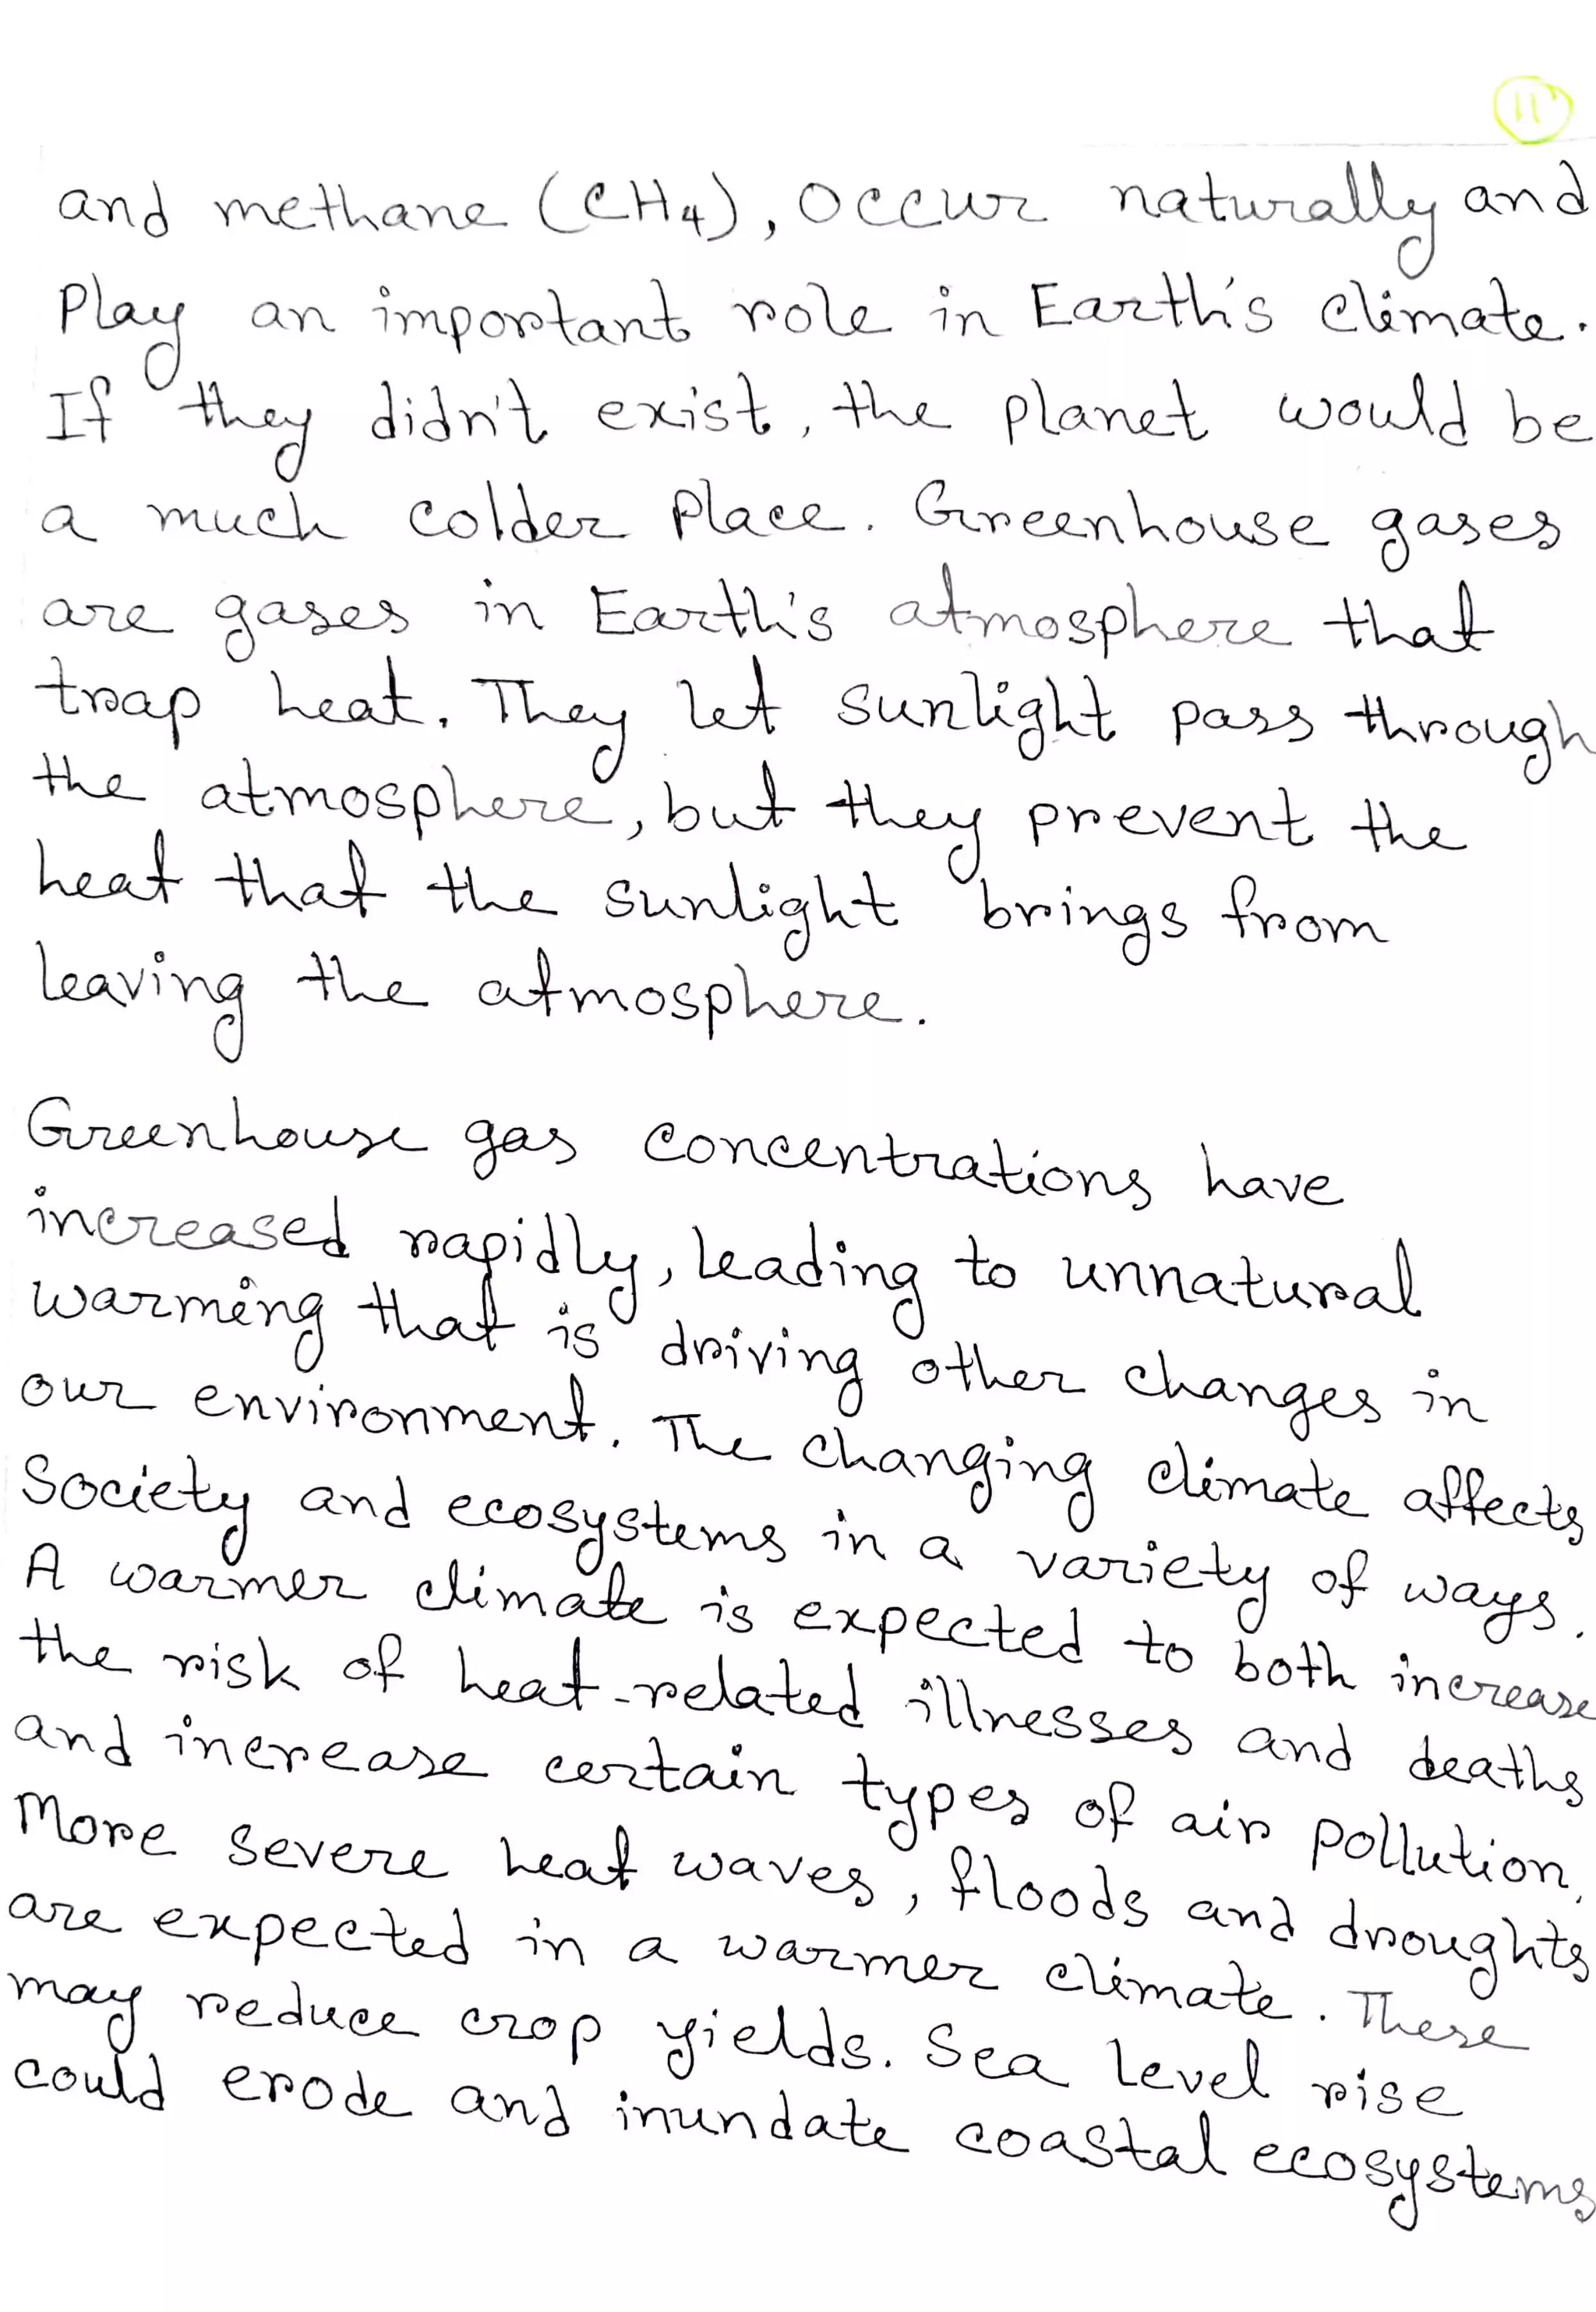 11
and methane (CH4), occur naturally and
Play an important role in Earth's climate.
If they didn't exist, the planet would be
a much colder place. Greenhouse gases
are gases in Earth's atmosphere that
trap heat. They let sunlight pass through
the atmosphere, but they prevent the
heat that the sunlight brings from
leaving the atmosphere.
Greenhouse gas concentrations have
increased rapidly, leading to unnatural
warming that is driving other changes in
our environment. The changing climate affects
Society and ecosystems in a variety of ways.
A warmer climate is expected to both increase
the risk of heat-related illnesses and deaths
and increase certain types of air pollution.
More severe heat waves, floods and droughts
are expected in a warmer climate. These
may reduce crop yields. Sea level rise
could erode and inundate coastal ecosystems